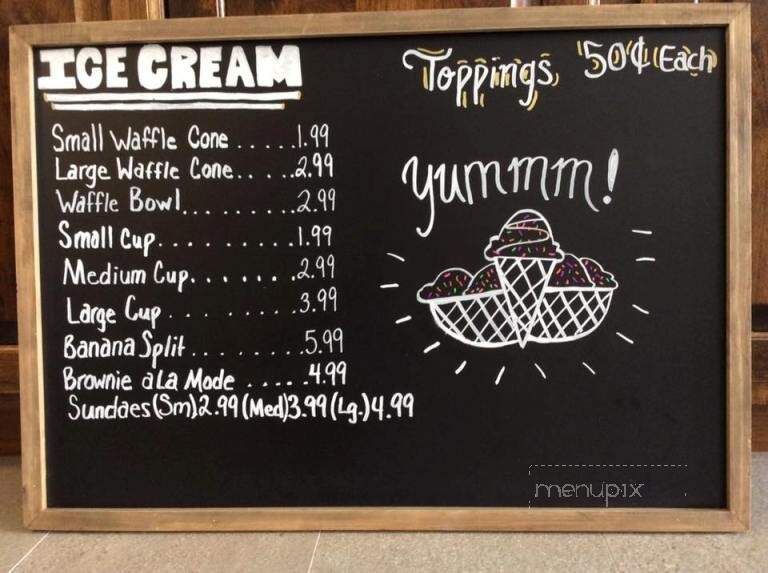 ICE CREAM
Small Waffle Cone.....1.99
Large Waffle Cone.....2.99
Waffle Bowl.........2.99
Small Cup..........1.99
Medium Cup........2.99
Large Cup.........3.99
Banana Split.........5.99
Brownie a La Mode.....4.99
Sundaes(Sm)2.99(Med)3.99(Lg.)4.99
Toppings 50¢ Each
yummm!
menupix